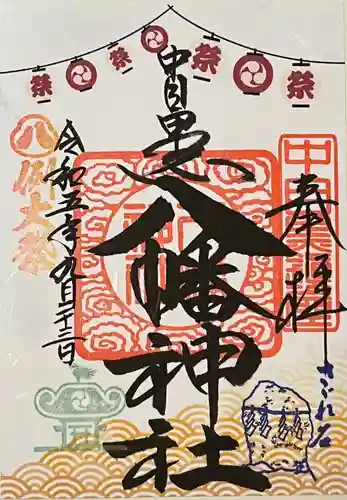 祭 祭 祭 祭
奉拝
さゞれ石
中目黒
八幡神社
令和五年九月二十三日
八
例大祭